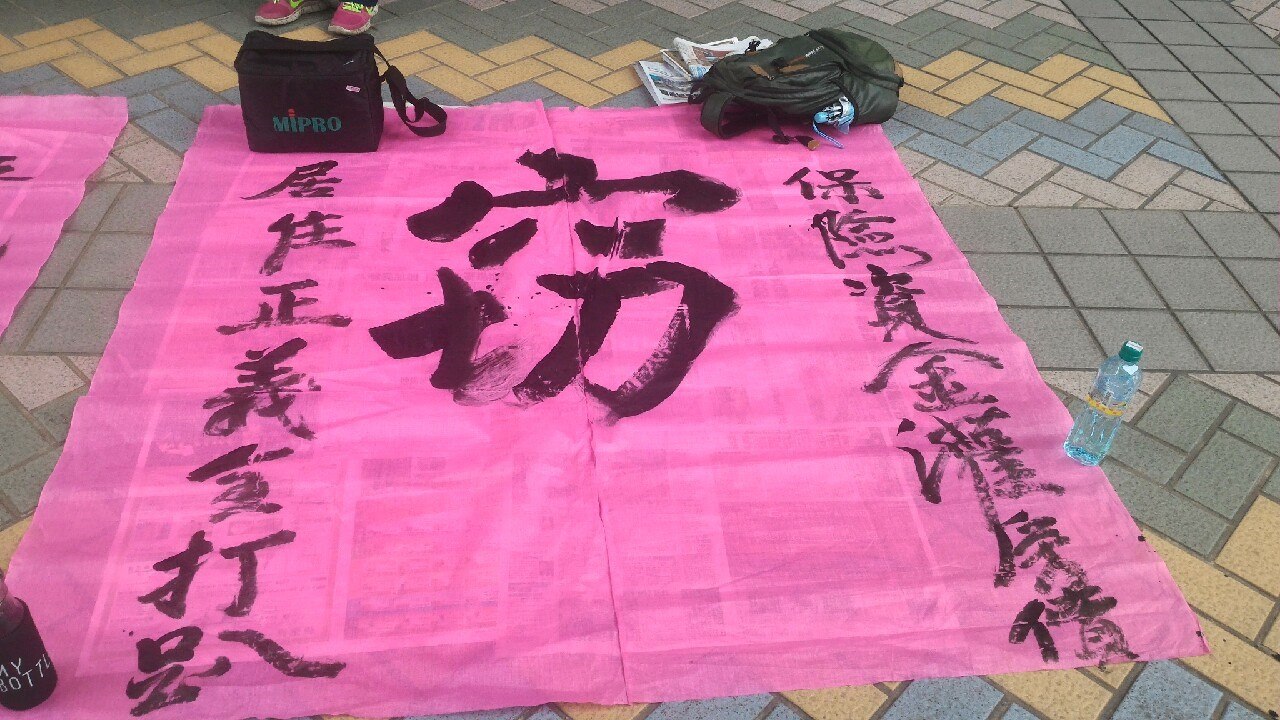 MiPRO
保險資金灌房價
窃
居住正義全打趴
MY
BOTTL